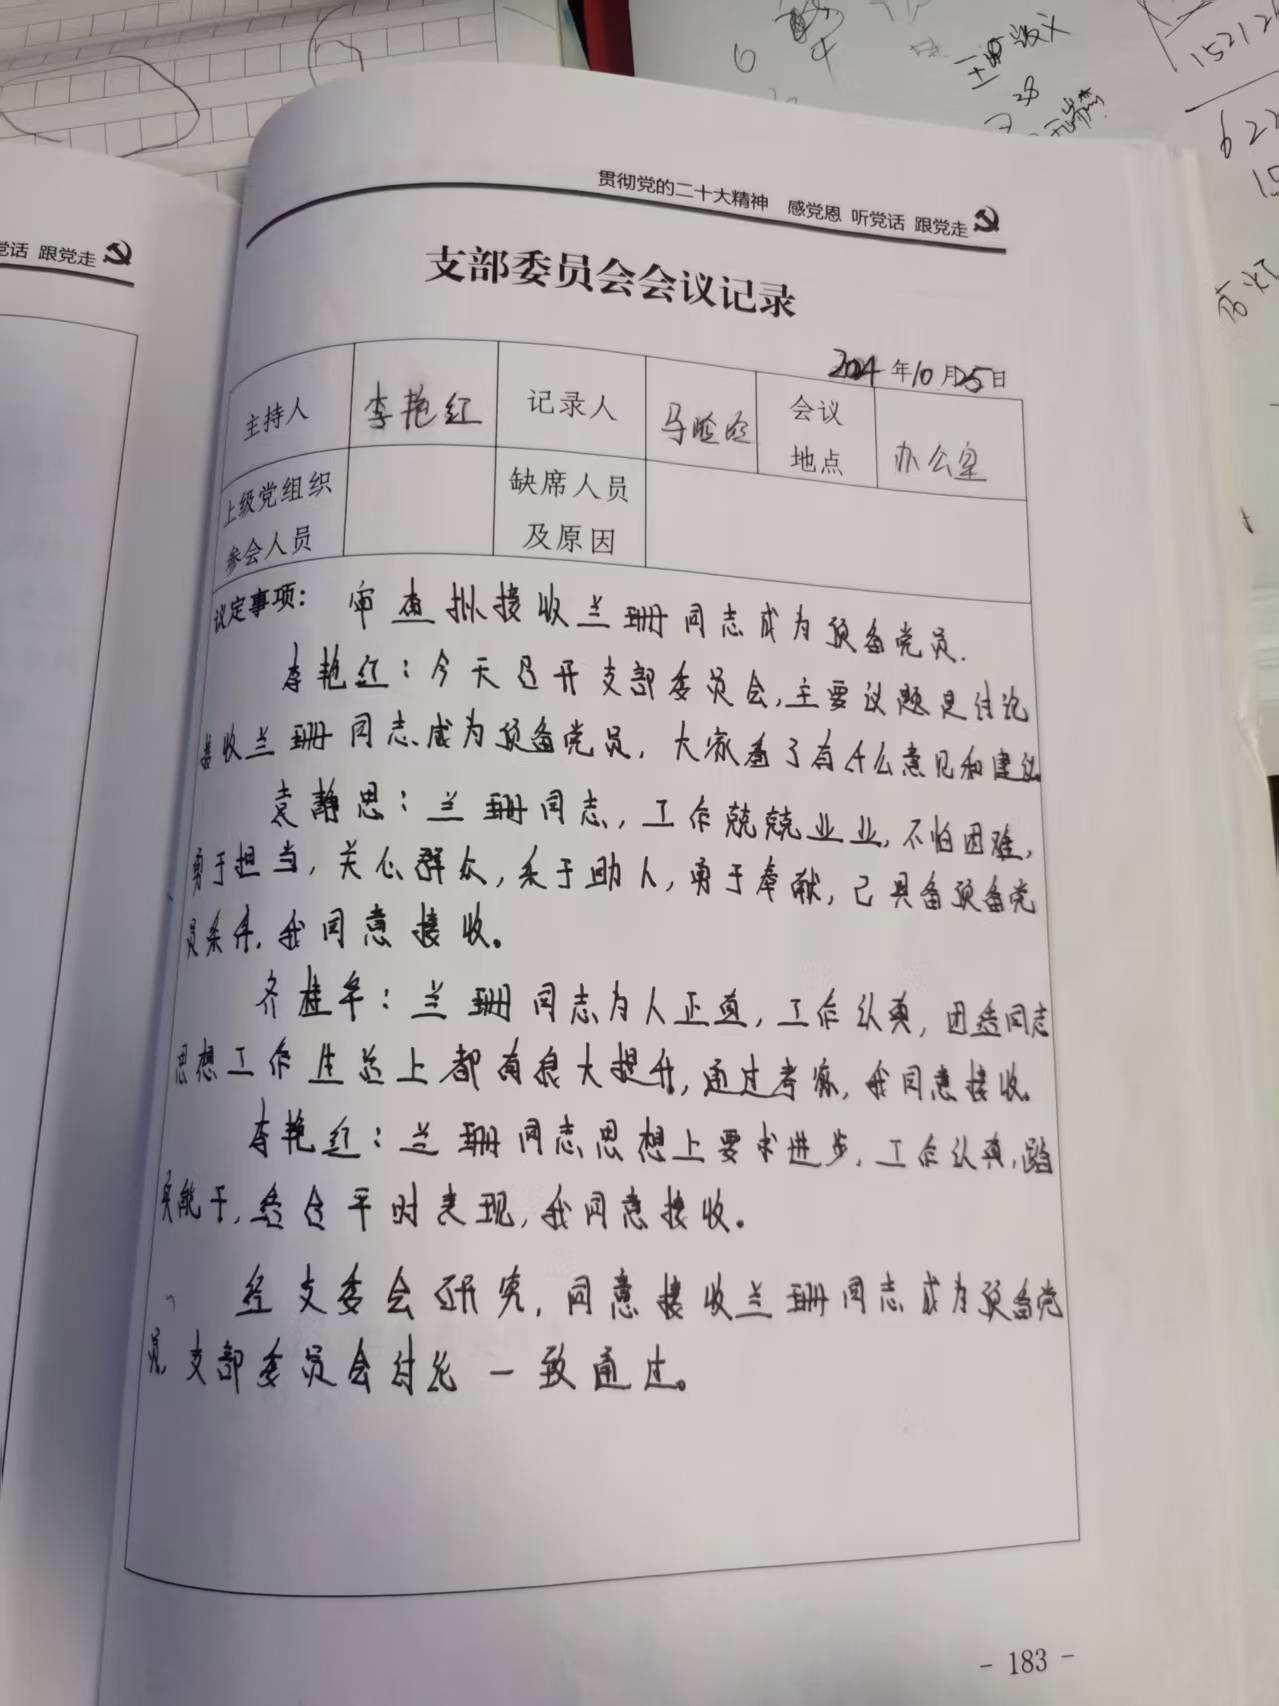 贯彻党的二十大精神 感党恩 听党话 跟党走
党话 跟党走
支部委员会会议记录
2024年10月25日
主持人 李艳红 记录人 马 会议地点 办公室
上级党组织参会人员 缺席人员及原因
议定事项: 审查拟接收兰珊同志成为预备党员.
李艳红:今天召开支部委员会,主要议题是讨论
接收兰珊同志成为预备党员,大家看了有什么意见和建议
袁静思:兰珊同志,工作兢兢业业,不怕困难,
勇于担当,关心群众,乐于助人,勇于奉献,已具备预备党
员条件,我同意接收。
齐桂华:兰珊同志为人正直,工作认真,团结同志
思想工作生活上都有很大提升,通过考察,我同意接收。
李艳红:兰珊同志思想上要求进步,工作认真,踏
实能干,结合平时表现,我同意接收。
经支委会研究,同意接收兰珊同志成为预备党
员,支部委员会讨论一致通过。
- 183 -